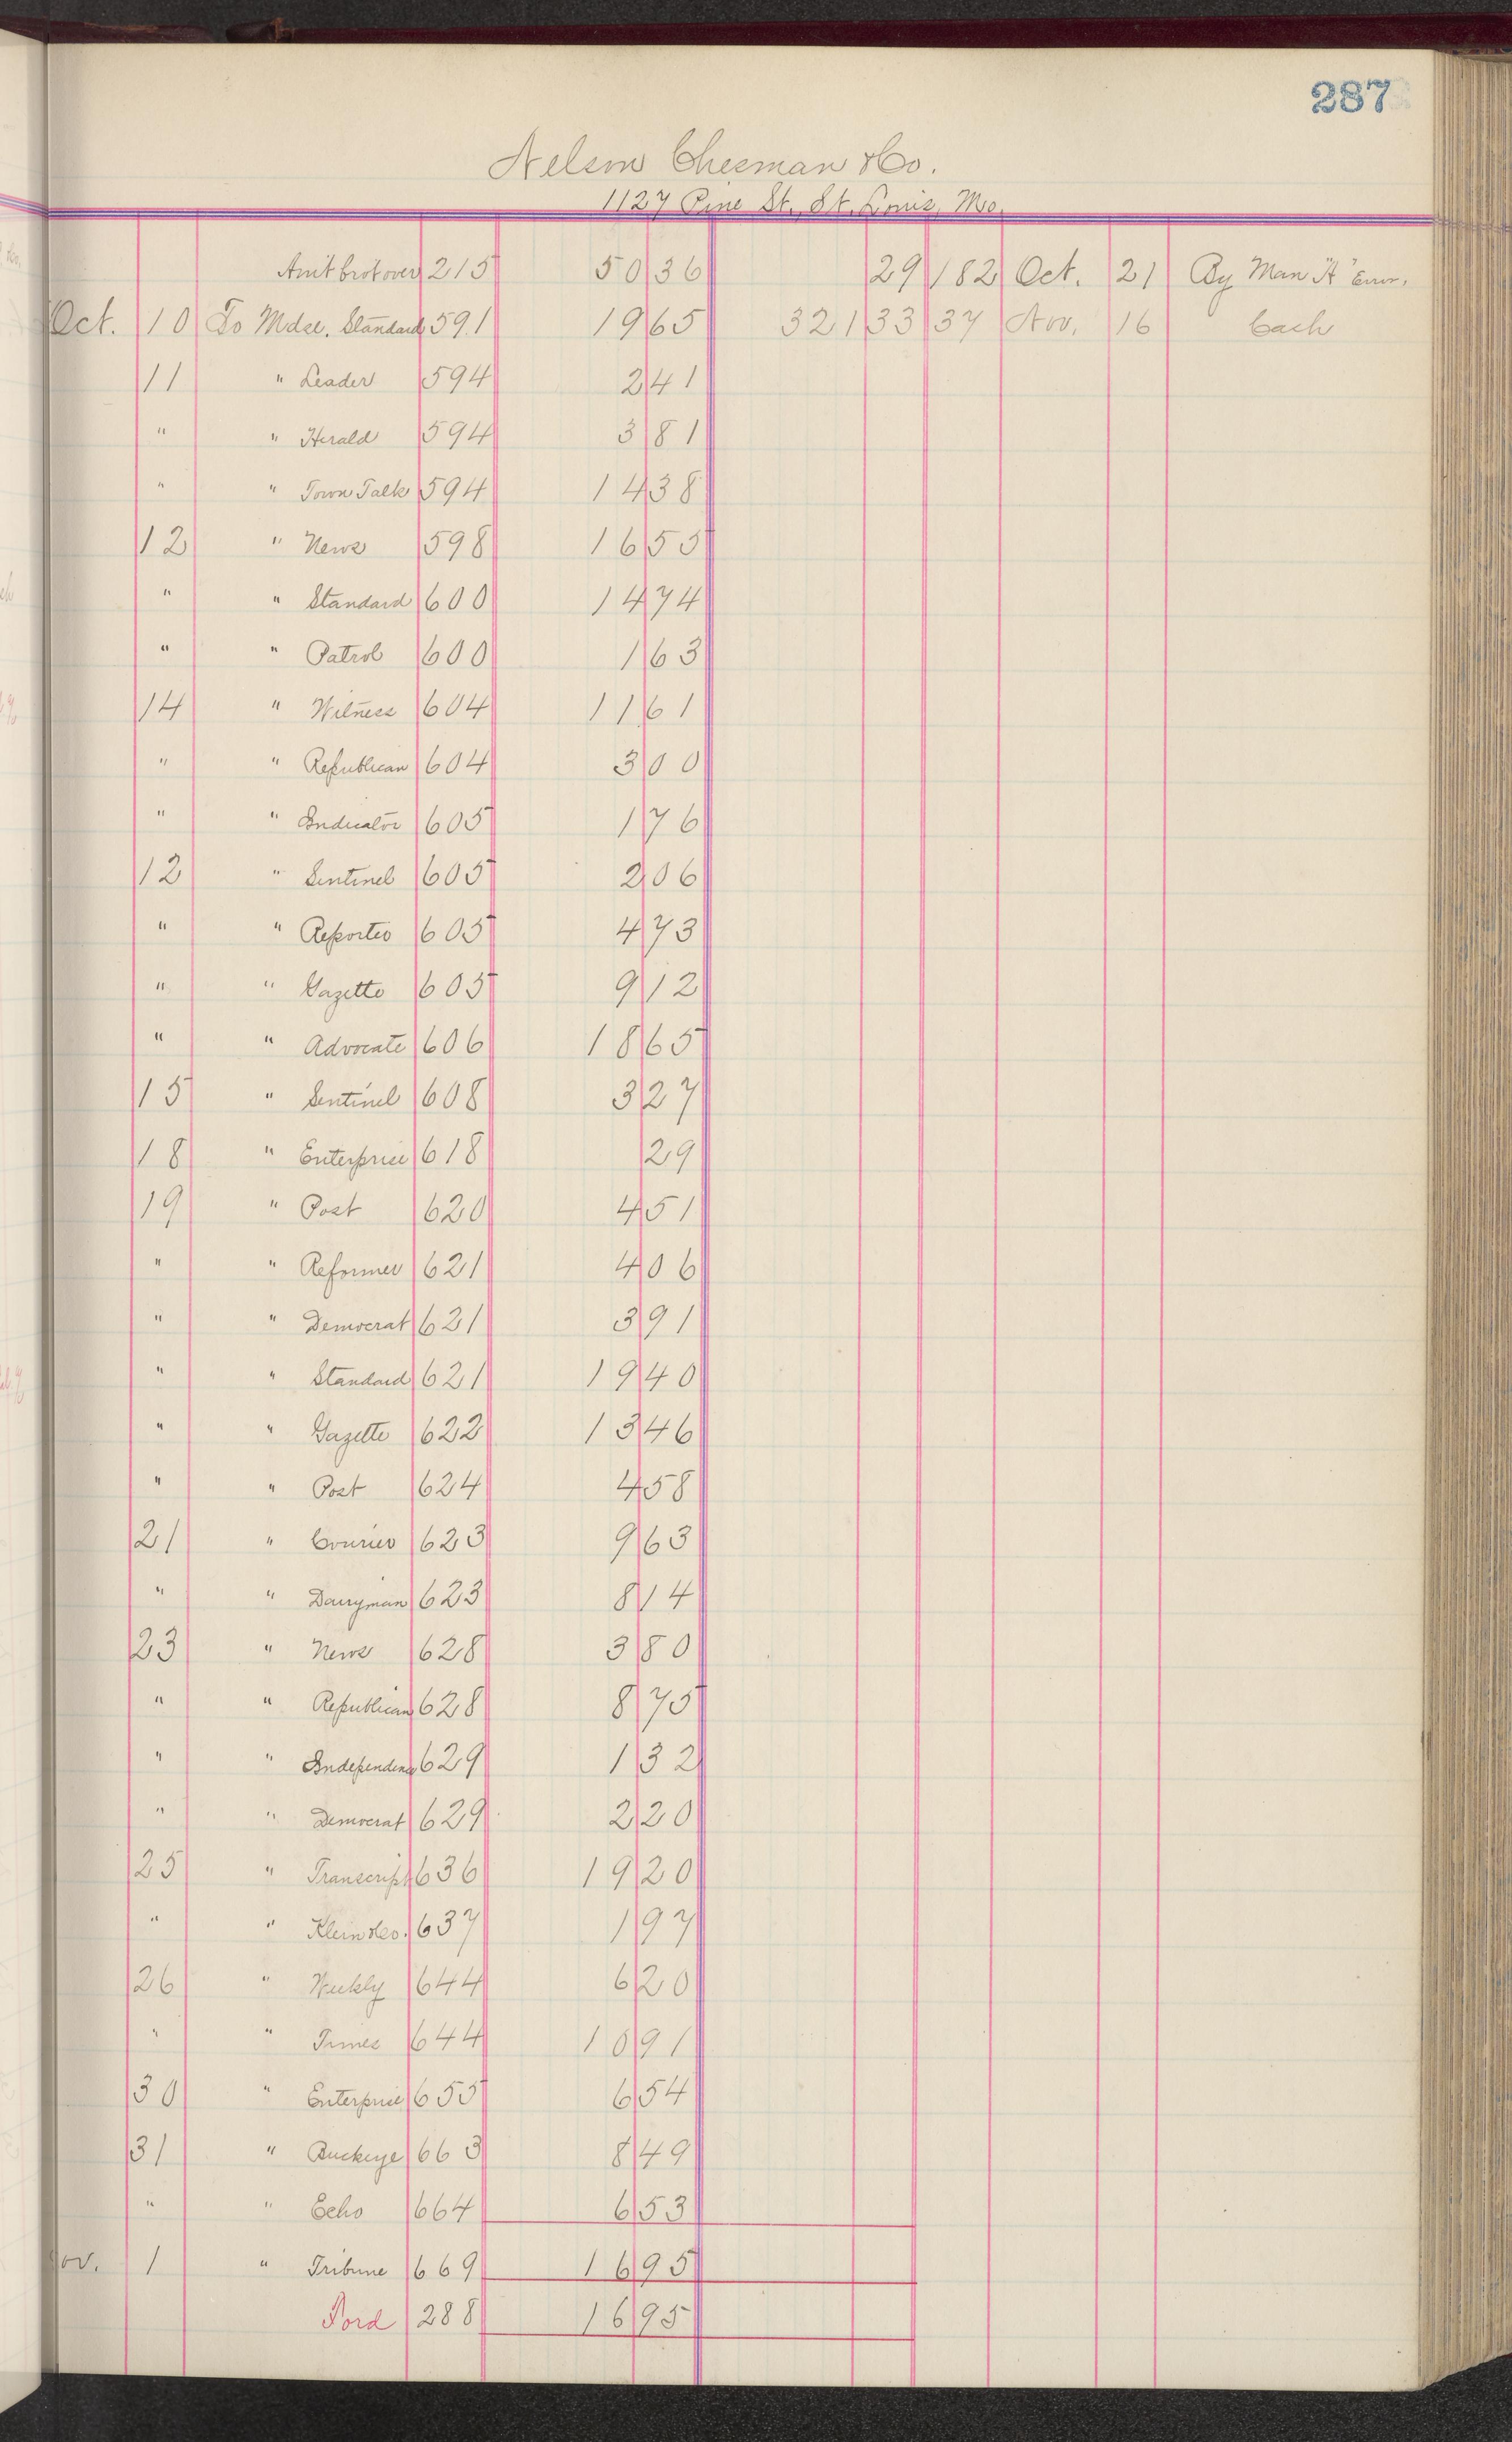 287
Nelson Chesman & Co.
1127 Pine St., St. Louis, Mo.
Am't brot over 215 50 36 29 182 Oct. 21 By Man "A" Error.
Oct. 10 To Mdse. Standard 591 19 65 321 33 37 Nov. 16 Cash
11 " Leader 594 2 41
" " Herald 594 3 81
" " Town Talk 594 14 38
12 " News 598 16 55
" " Standard 600 14 74
" " Patrol 600 1 63
14 " Witness 604 11 61
" " Republican 604 3 00
" " Indicator 605 1 76
12 " Sentinel 605 2 06
" " Reporter 605 4 73
" " Gazette 605 9 12
" " Advocate 606 18 65
15 " Sentinel 608 3 27
18 " Enterprise 618 29
19 " Post 620 4 51
" " Reformer 621 4 06
" " Democrat 621 3 91
" " Standard 621 19 40
" " Gazette 622 13 46
" " Post 624 4 58
21 " Courier 623 9 63
" " Dairyman 623 8 14
23 " News 628 3 80
" " Republican 628 8 75
" " Independent 629 1 32
" " Democrat 629 2 20
25 " Transcript 636 19 20
" " Klein & Co. 637 1 97
26 " Weekly 644 6 20
" " Times 644 10 91
30 " Enterprise 655 6 54
31 " Buckeye 663 8 49
" " Echo 664 6 53
Nov. 1 " Tribune 669 16 95
Ford 288 16 95